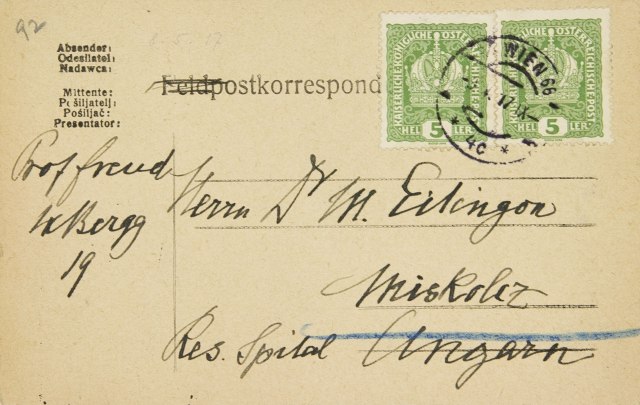 92
Absender:
Odesílatel:
Nadawca:
Mittente:
Pošiljatelj:
Pošiljač:
Presentator:
Feldpostkorrespond
KAISERLICHE KÖNIGLICHE ÖSTERREICHISCHE POST
HELLER 5
WIEN 66
4c
KAISERLICHE KÖNIGLICHE ÖSTERREICHISCHE POST
HELLER 5
Prof Freud
IX Bergg
19
Herrn Dr M. Eitingon
Miskolcz
Res. Spital Ungarn